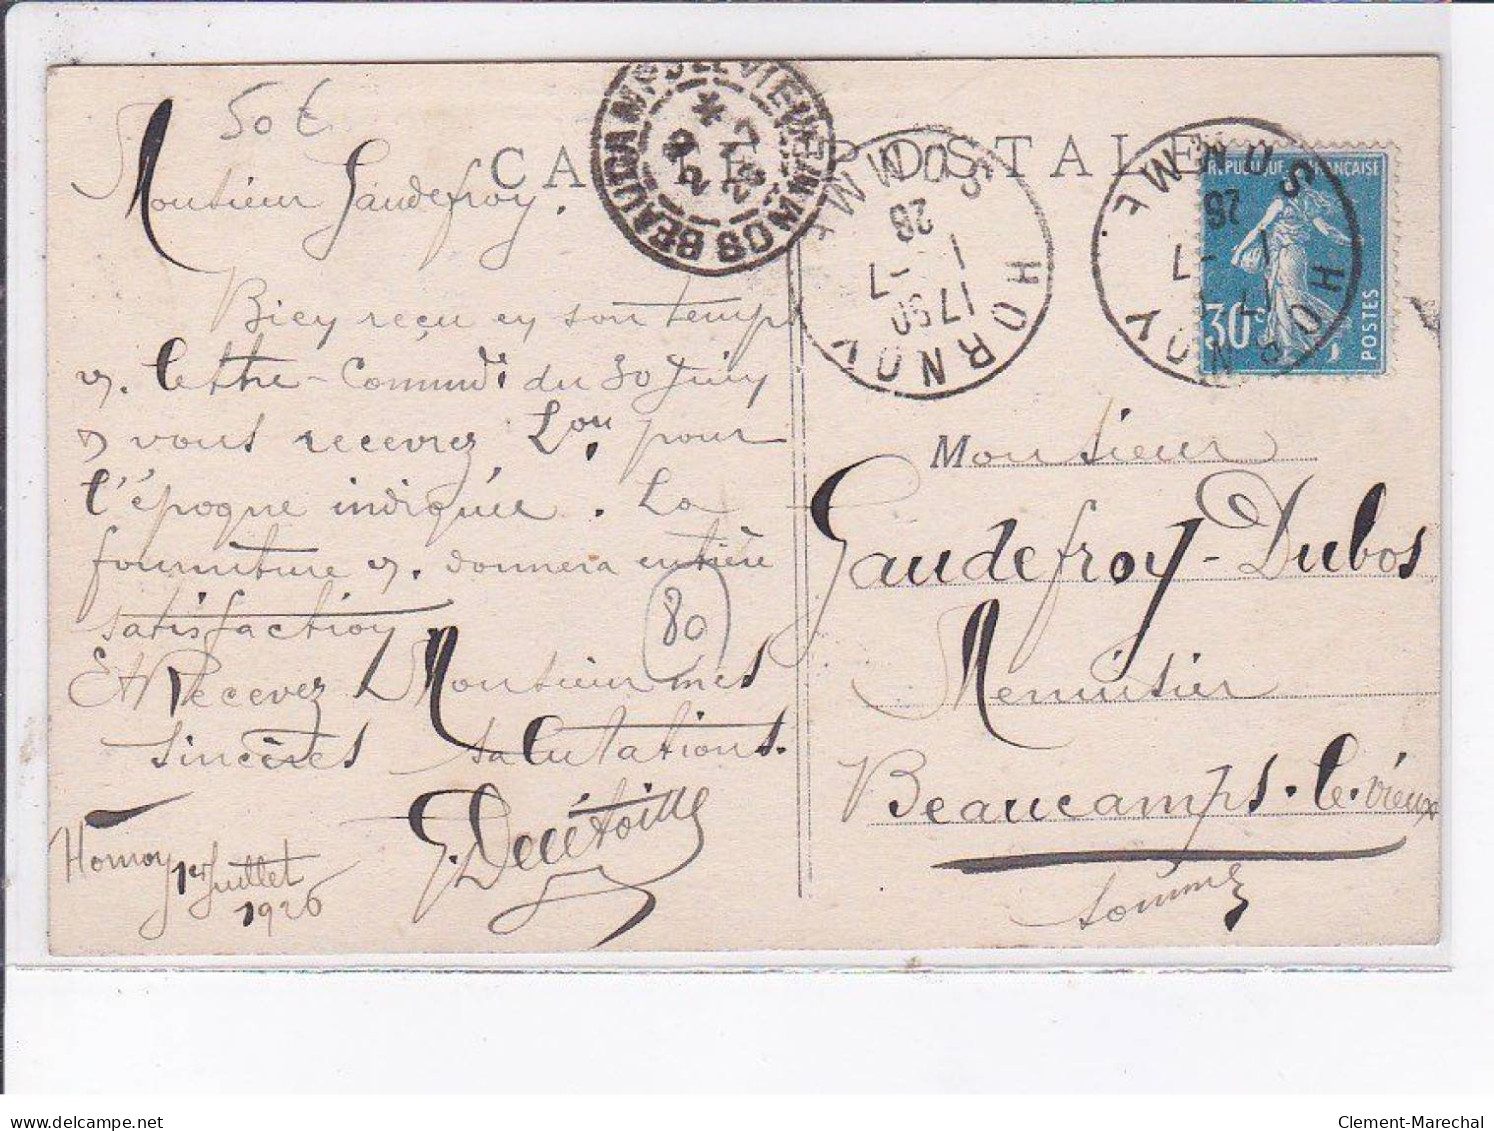 50 €
CARTE POSTALE
Monsieur Gaudefroy.
Bien reçu en son temps
v. lettre-Commde du 30 Juin
vous recevrez pour
l'époque indiquée. La
fourniture v. donnera entière
satisfaction
Et Recevez Monsieur mes
sincères salutations.
Hornoy 1er Juillet
1926
80
BEAUCAMPS LE VIEUX SOMME
HORNOY SOMME
1730
1 -7
26
HORNOY SOMME
17
1 -7
26
REPUBLIQUE FRANÇAISE
30c
POSTES
Monsieur
Gaudefroy-Dubos
Menuisier
Beaucamps-le-Vieux
Somme
delcampe.net
Clement-Marechal